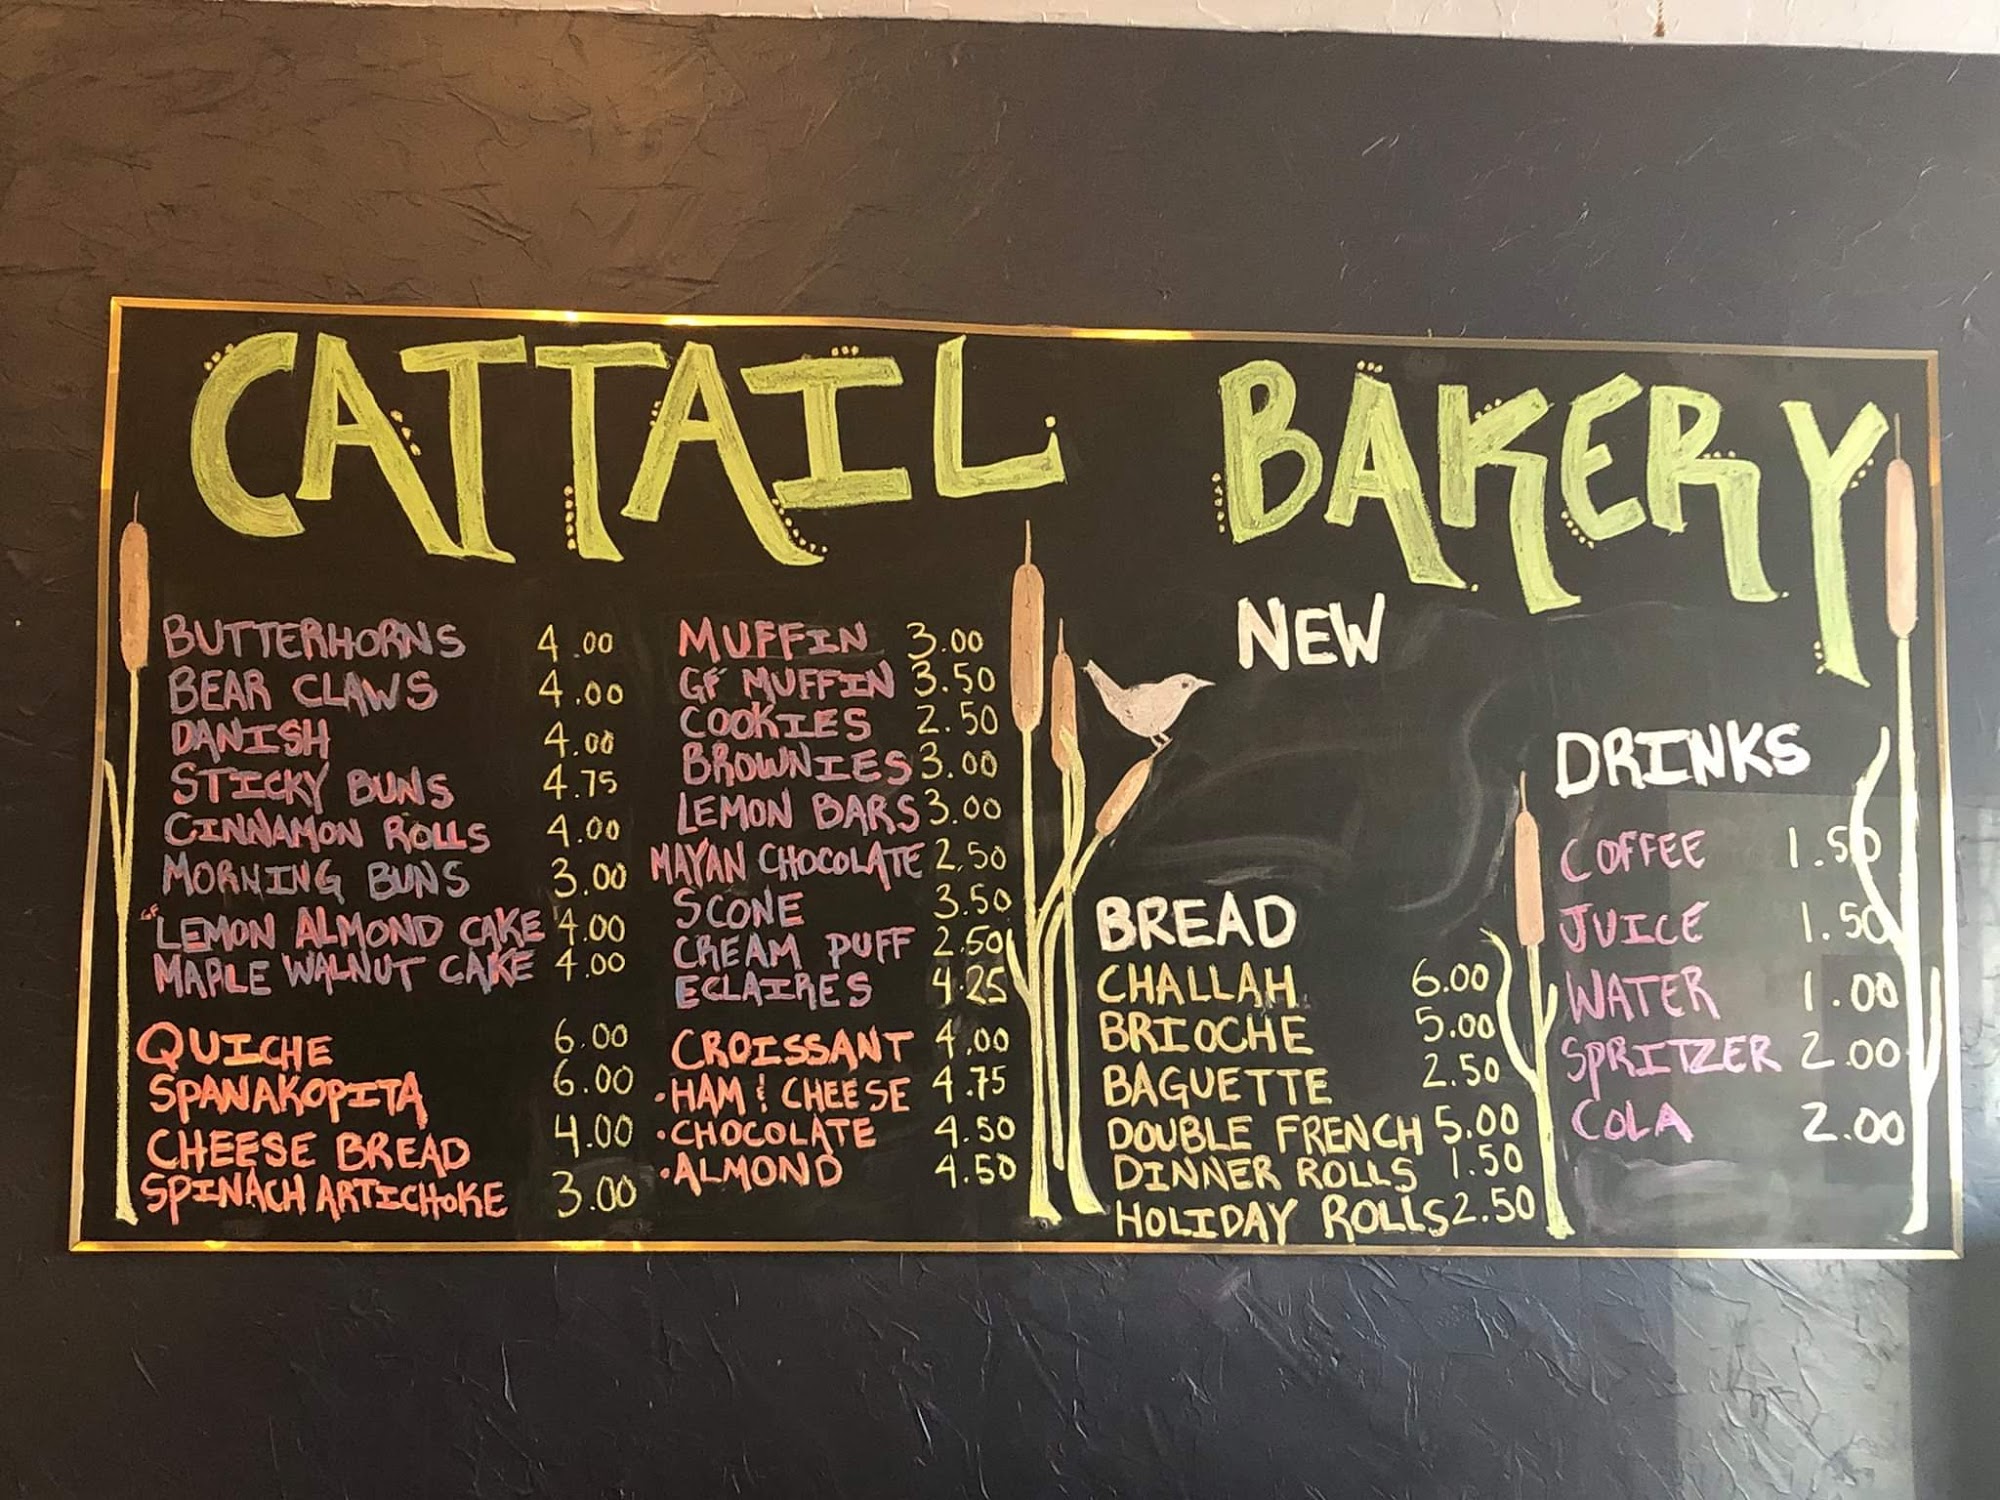 CATTAIL BAKERY
BUTTERHORNS 4.00
BEAR CLAWS 4.00
DANISH 4.00
STICKY BUNS 4.75
CINNAMON ROLLS 4.00
MORNING BUNS 3.00
GF LEMON ALMOND CAKE 4.00
MAPLE WALNUT CAKE 4.00
QUICHE 6.00
SPANAKOPITA 6.00
CHEESE BREAD 4.00
SPINACH ARTICHOKE 3.00
MUFFIN 3.00
GF MUFFIN 3.50
COOKIES 2.50
BROWNIES 3.00
LEMON BARS 3.00
MAYAN CHOCOLATE 2.50
SCONE 3.50
CREAM PUFF 2.50
ECLAIRES 4.25
CROISSANT 4.00
·HAM & CHEESE 4.75
·CHOCOLATE 4.50
·ALMOND 4.50
NEW
BREAD
CHALLAH 6.00
BRIOCHE 5.00
BAGUETTE 2.50
DOUBLE FRENCH 5.00
DINNER ROLLS 1.50
HOLIDAY ROLLS 2.50
DRINKS
COFFEE 1.50
JUICE 1.50
WATER 1.00
SPRITZER 2.00
COLA 2.00